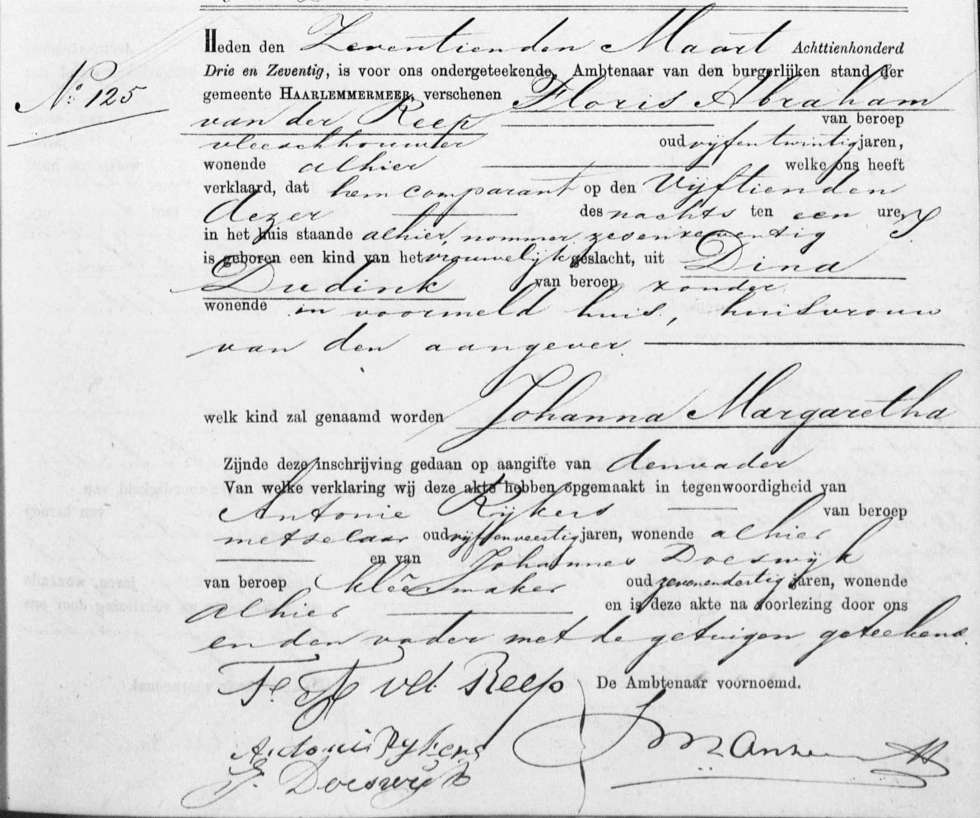 Heden den Zeventienden Maart Achttienhonderd
Drie en Zeventig, is voor ons ondergeteekende, Ambtenaar van den burgerlijken stand der
No 125
gemeente HAARLEMMERMEER, verschenen Floris Abraham
van der Reep van beroep
vleeschhouwer oud vijfentwintig jaren,
wonende alhier welke ons heeft
verklaard, dat hem comparant op den Vijftienden
dezer des nachts ten een ure,
in het huis staande alhier, nommer zesenzeventig
is geboren een kind van het vrouwelijk geslacht, uit Dina
Dudink van beroep zonder
wonende in voormeld huis, huisvrouw
van den aangever
welk kind zal genaamd worden Johanna Margaretha
Zijnde deze inschrijving gedaan op aangifte van den vader
Van welke verklaring wij deze akte hebben opgemaakt in tegenwoordigheid van
Antonie Rijkers van beroep
metselaar oud vijfenveertig jaren, wonende alhier
en van Johannes Doeswijk
van beroep kleêrmaker oud zevenendertig jaren, wonende
alhier en is deze akte na voorlezing door ons
en den vader met de getuigen geteekend.
v.d. Reep De Ambtenaar voornoemd.
Antonie Rijkers
J. Doeswijk